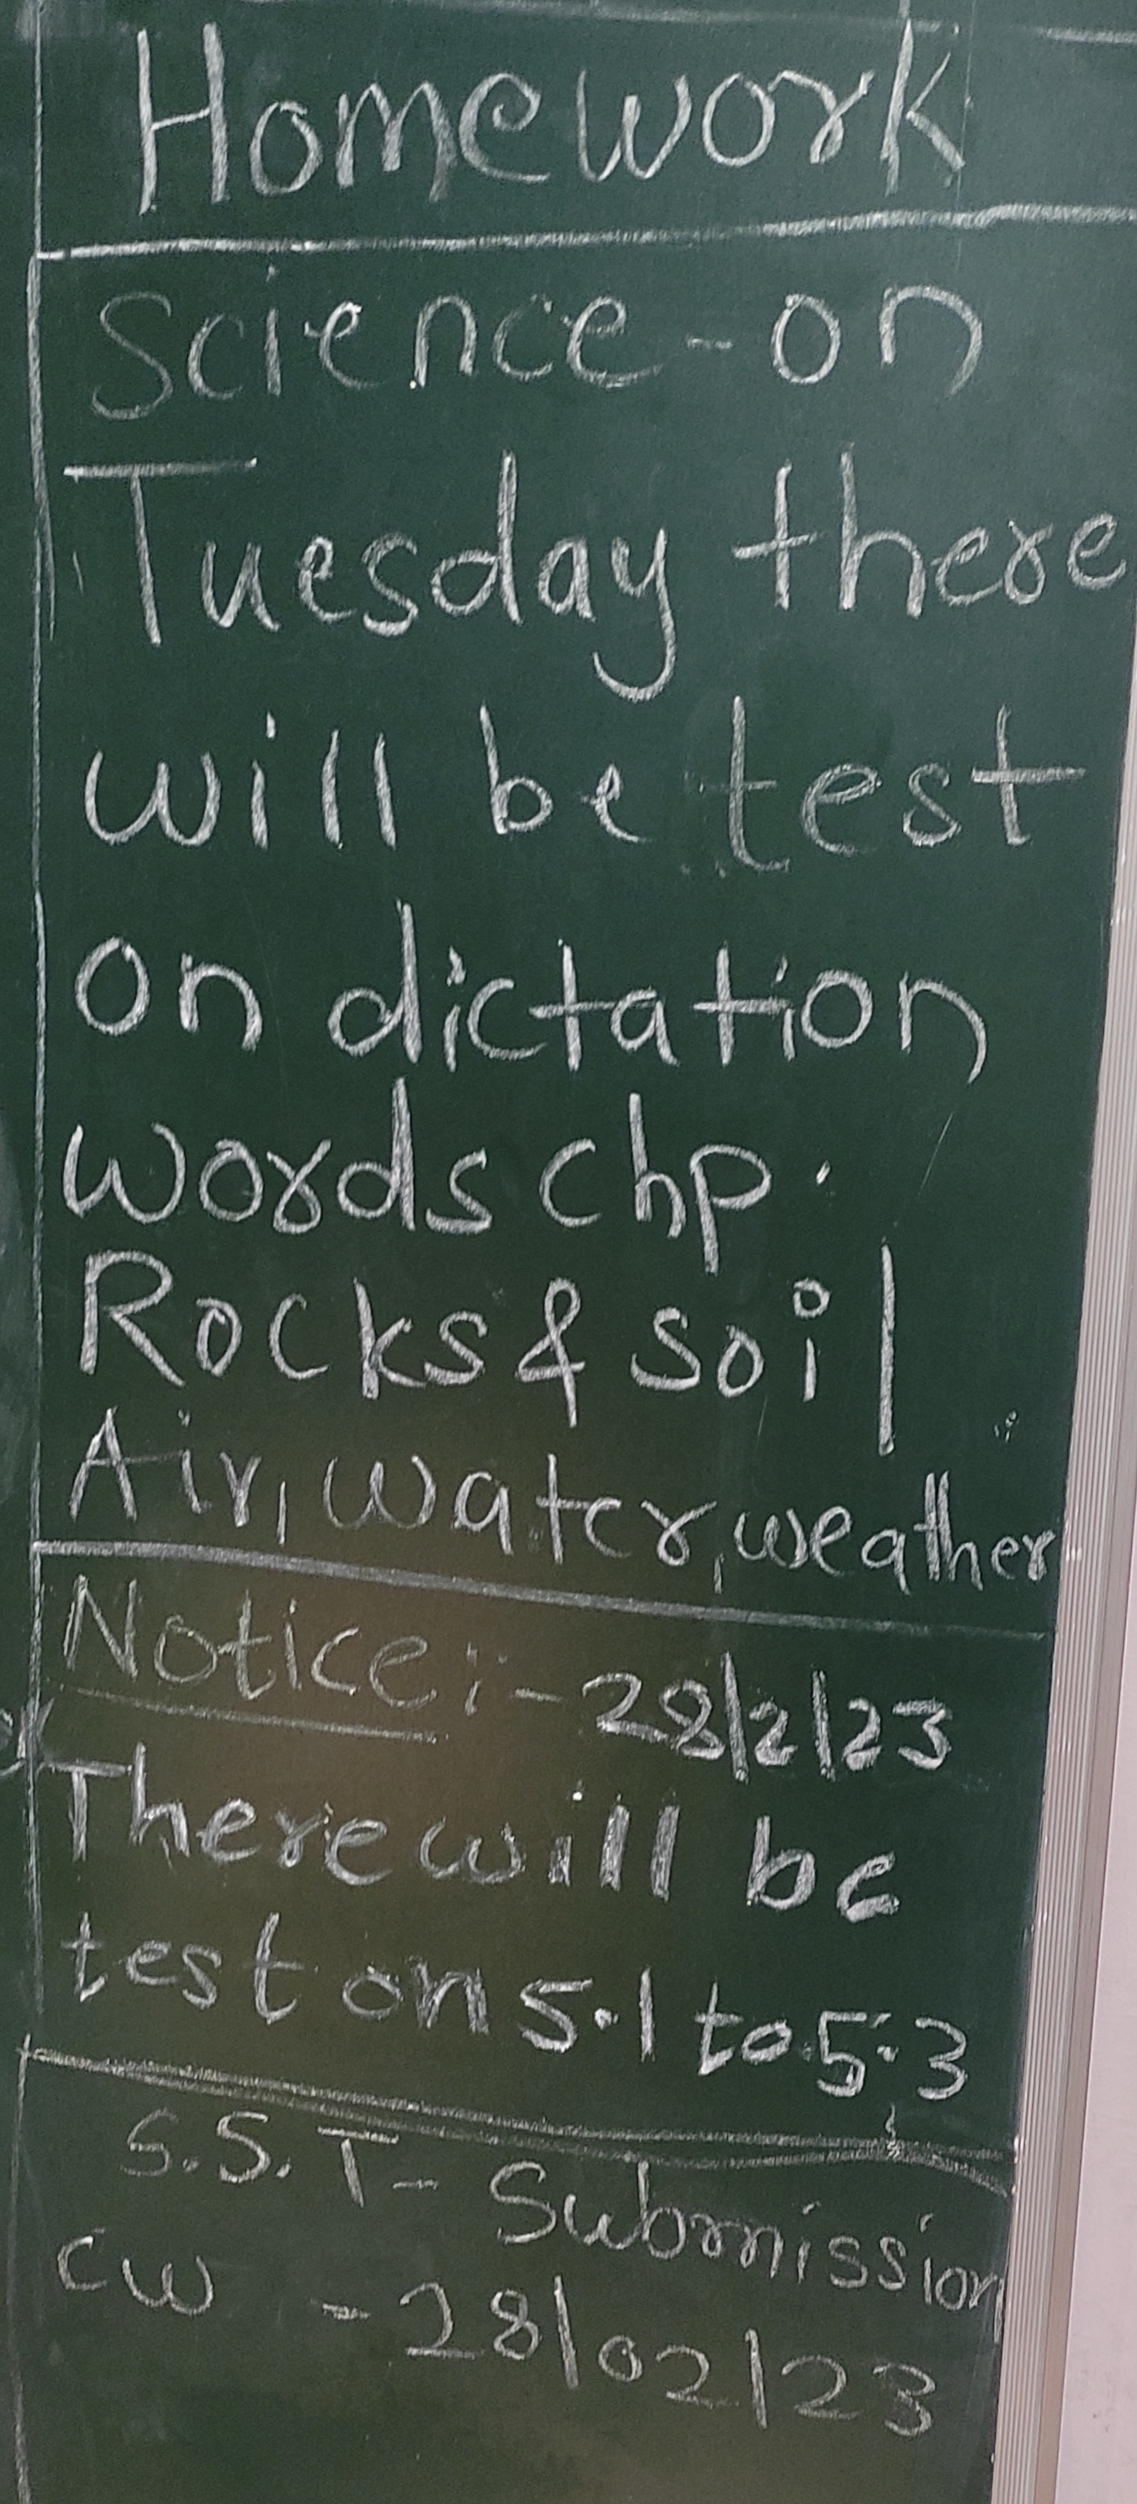 Homework
Science - on
Tuesday there
will be test
on dictation
words chp.
Rocks & soil
Air, water, weather
Notice :- 28/2/23
There will be
test on 5.1 to 5.3
S.S.T - Submission
CW - 28/02/23